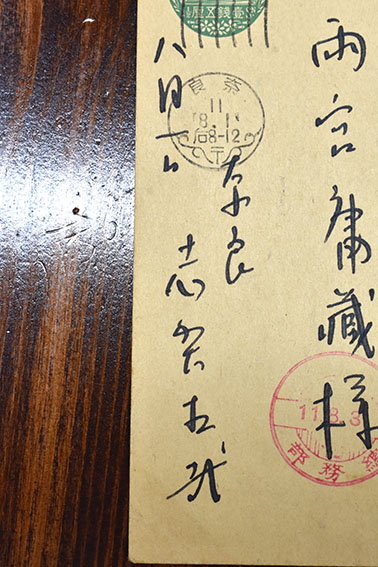 雨宮庸藏様
奈良
志賀直哉
八月一日
奈良
11
8.1
后8-12
11.8.3
總務部